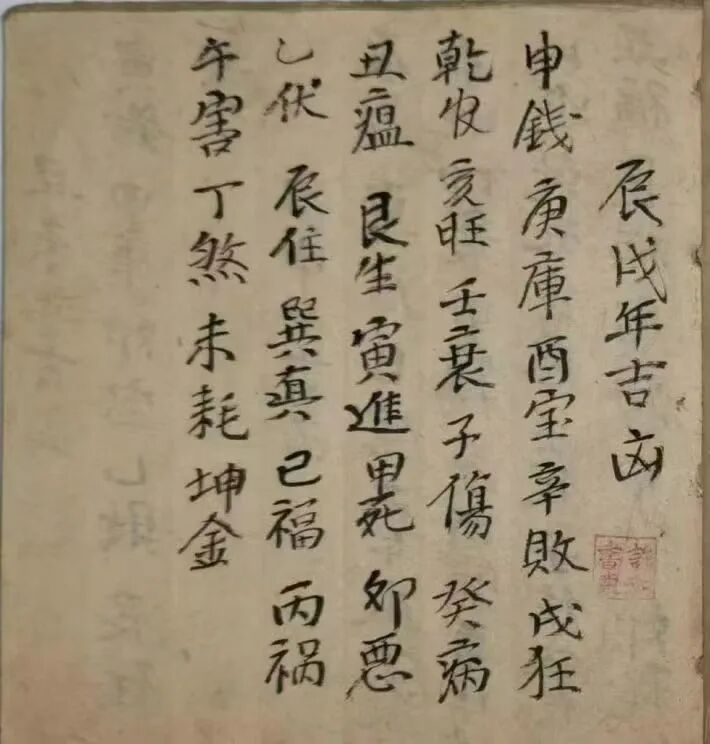 辰戌年吉凶
申錢 庚庫 酉宝 辛敗 戌狂
乾官 亥旺 壬衰 子傷 癸病
丑瘟 艮生 寅進 甲死 卯悪
乙伏 辰住 巽真 巳福 丙祸
午害 丁煞 未耗 坤金